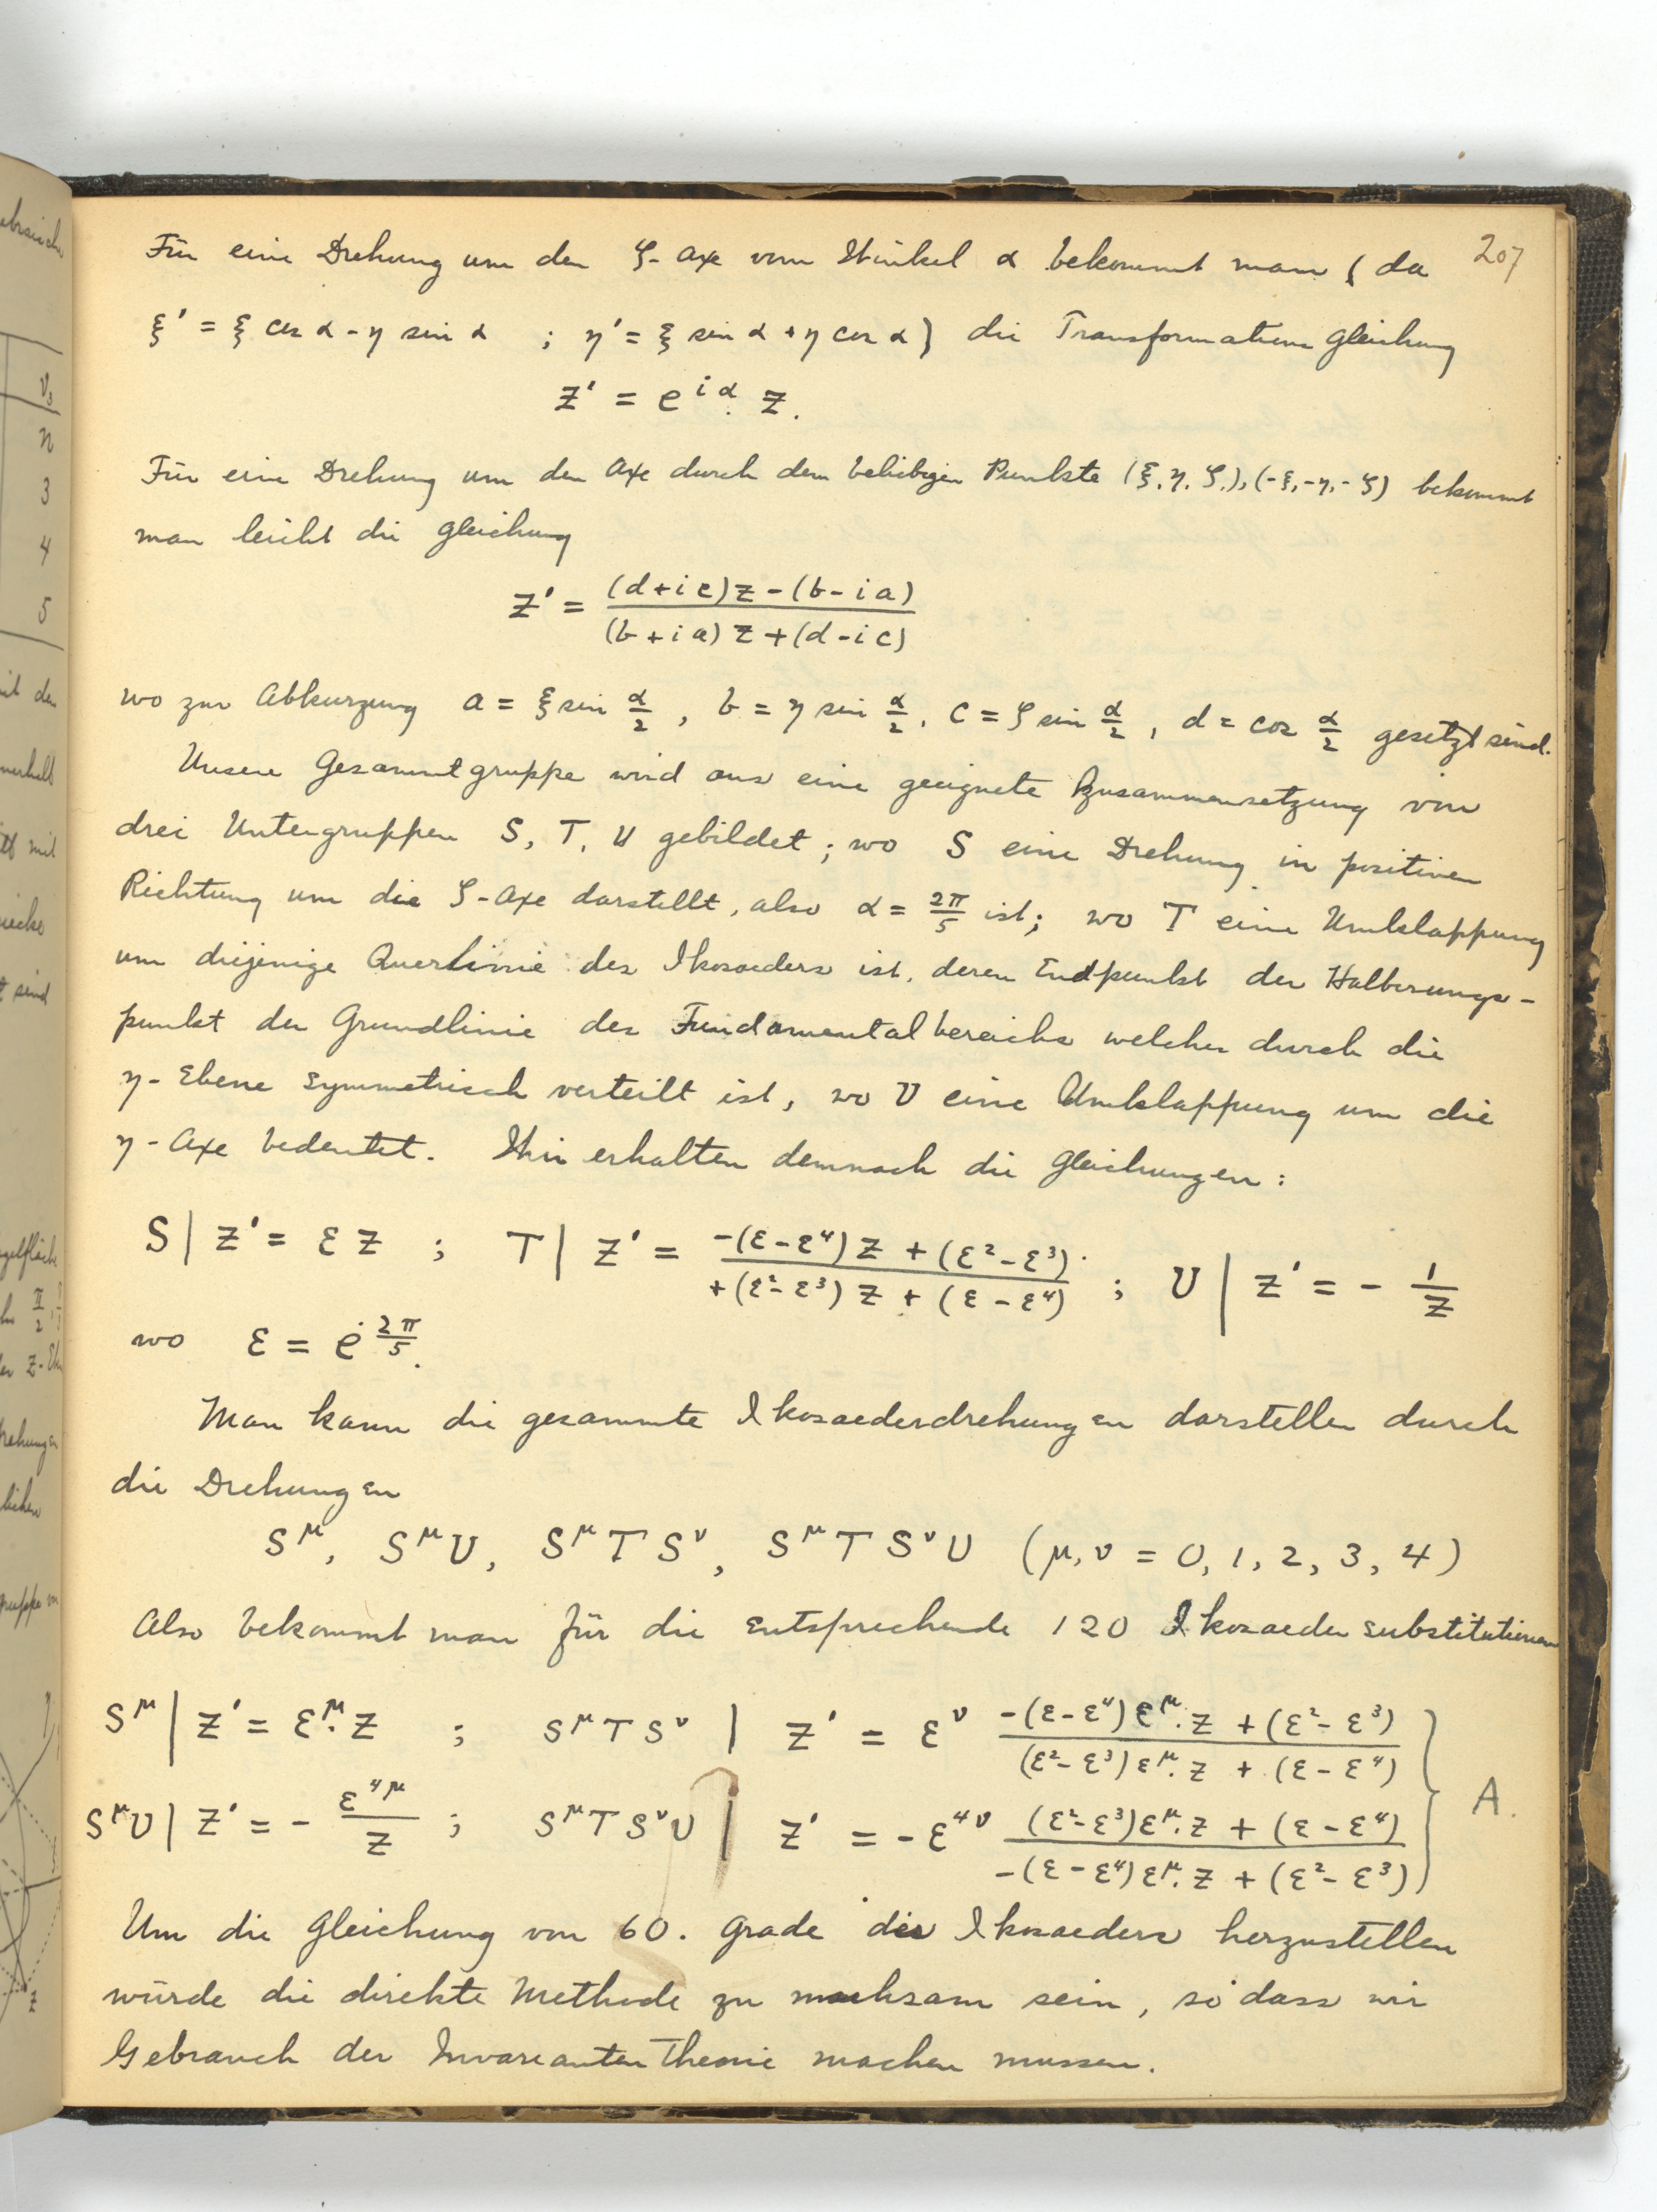 207
Für eine Drehung um den ζ-Axe vom Winkel α bekommt man ( da
ξ' = ξ cos α - η sin α ; η' = ξ sin α + η cos α ) die Transformations gleichung
z' = e^{iα}. z.
Für eine Drehung um den Axe durch dem beliebigen Punkte (ξ, η, ζ,), (-ξ, -η, -ζ) bekommt
man leicht die gleichung
z' = \frac{(d+ic)z-(b-ia)}{(b+ia)z+(d-ic)}
wo zur Abkurzung a = ξ sin \frac{α}{2}, b = η sin \frac{α}{2}, c = ζ sin \frac{α}{2}, d = cos \frac{α}{2} gesetzt sind.
Unsere Gesammtgruppe wird aus eine geeignete Zusammensetzung von
drei Untergruppen S, T, U gebildet; wo S eine Drehung in positiven
Richtung um die ζ-Axe darstellt, also α = \frac{2π}{5} ist; wo T eine Umklappung
um diejenige Querlinie des Ikosaeders ist, deren Endpunkt der Halberungs-
punkt der Grundlinie des Fundamentalbereichs welcher durch die
η-Ebene symmetrisch verteilt ist, wo U eine Umklappung um die
η-Axe bedeutet. Wir erhalten demnach die gleichungen:
S | z' = εz ; T | z' = \frac{-(ε-ε^4)z+(ε^2-ε^3)}{+(ε^2-ε^3)z+(ε-ε^4)} ; U | z' = - \frac{1}{z}
wo ε = e^{\frac{2π}{5}}.
Man kann die gesammte Ikosaederdrehungen darstellen durch
die Drehungen
S^μ, S^μU, S^μTS^ν, S^μTS^νU (μ, ν = 0, 1, 2, 3, 4)
Also bekommt man für die entsprechende 120 Ikosaeder substitutionen
S^μ | z' = ε^μ. z ; S^μTS^ν | z' = ε^ν \frac{-(ε-ε^4)ε^μ. z+(ε^2-ε^3)}{(ε^2-ε^3)ε^μ. z+(ε-ε^4)}
S^μU | z' = - \frac{ε^{4μ}}{z} ; S^μTS^νU | z' = -ε^{4ν} \frac{(ε^2-ε^3)ε^μ. z+(ε-ε^4)}{-(ε-ε^4)ε^μ. z+(ε^2-ε^3)} } A.
Um die gleichung von 60. grade des Ikosaeders herzustellen
würde die direkte Methode zu muehsam sein, so dass wir
Gebrauch der Invarianten Theorie machen mussen.